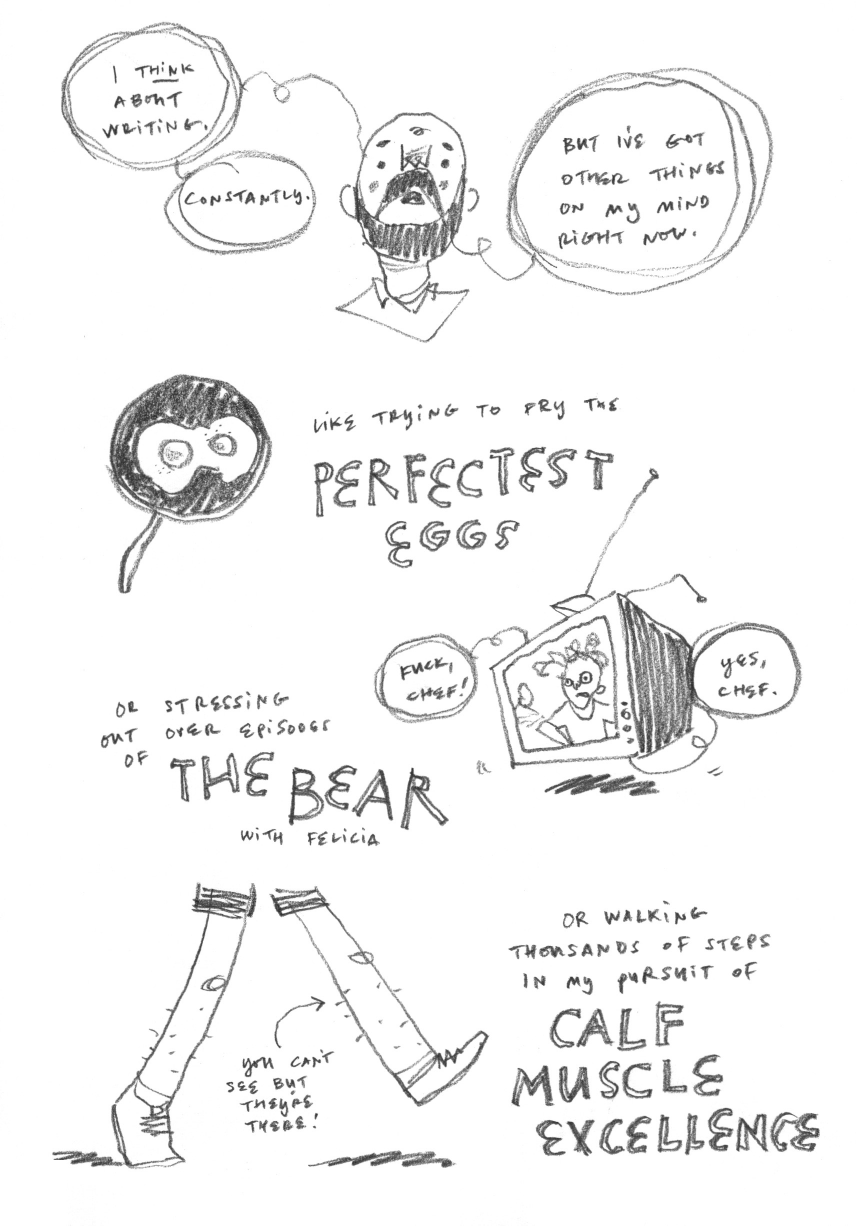 I THINK
ABOUT
WRITING.
CONSTANTLY.
BUT I'VE GOT
OTHER THINGS
ON MY MIND
RIGHT NOW.
LIKE TRYING TO FRY THE
PERFECTEST
EGGS
FUCK,
CHEF!
YES,
CHEF.
OR STRESSING
OUT OVER EPISODES
OF THE BEAR
WITH FELICIA
OR WALKING
THOUSANDS OF STEPS
IN MY PURSUIT OF
CALF
MUSCLE
EXCELLENCE
YOU CAN'T
SEE BUT
THEY'RE
THERE!